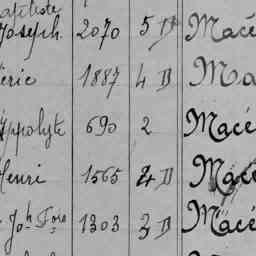 Baptiste
Joseph 2070 5 D Macé
éric 1887 4 D Ma
Hippolyte 690 2 Macé
Henri 1565 4 D Macé
Joh 1303 3 D Macé